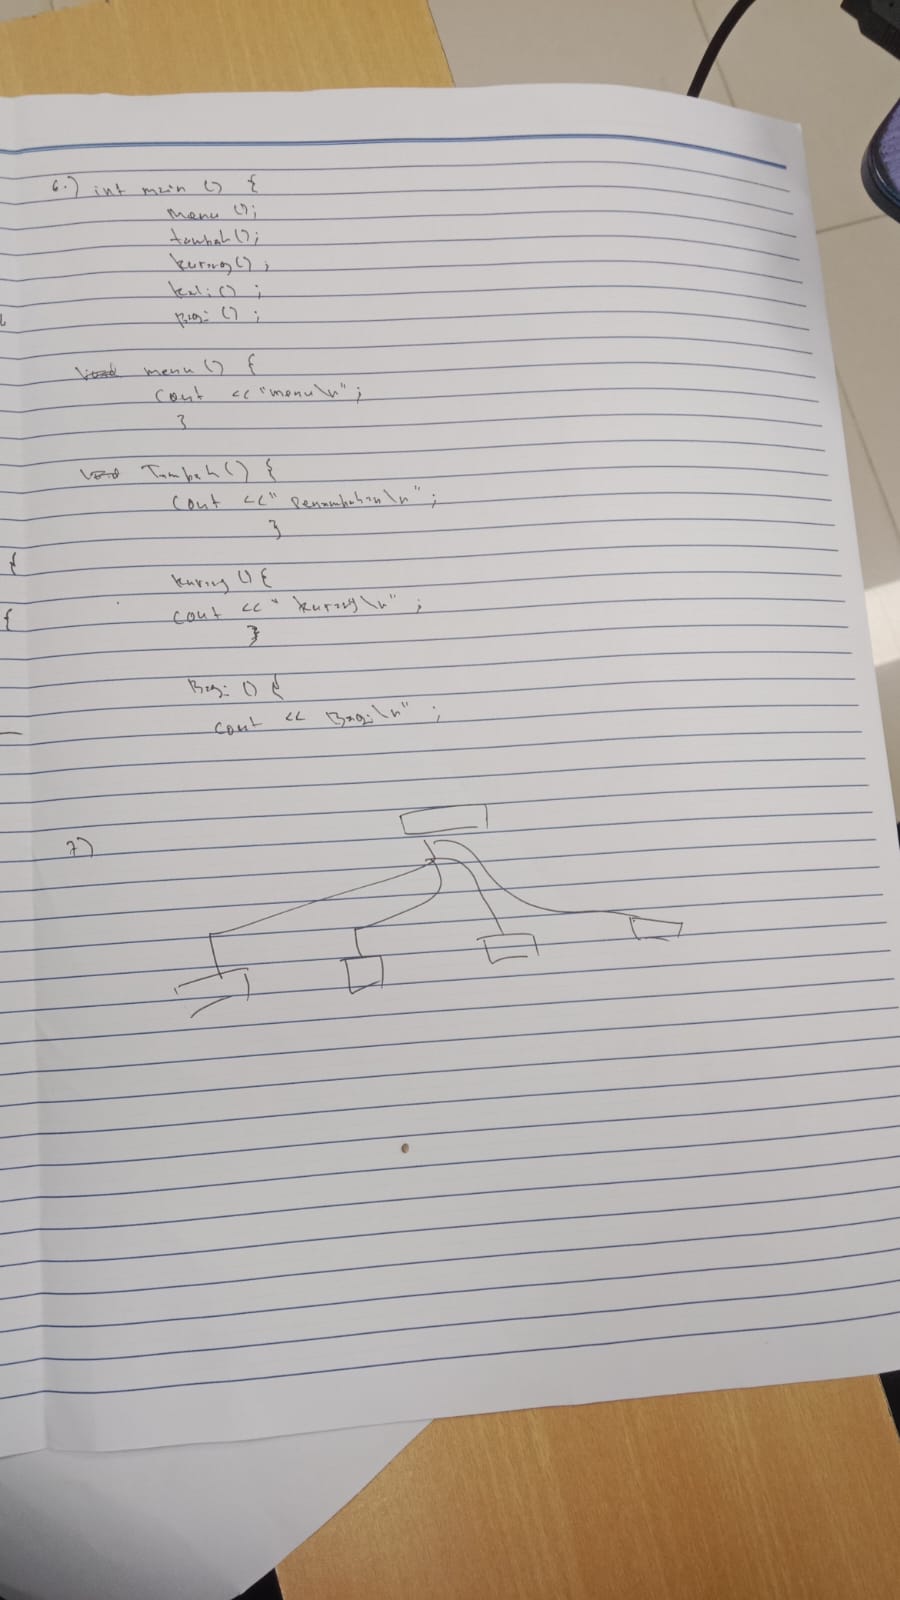 6.) int main () {
menu ();
tambah();
kurang() ;
kali() ;
Bagi () ;
void menu () {
cout << "menu\n" ;
}
void Tambah () {
cout << " Penambahan\n" ;
}
kurang () {
cout << " kurang\n" ;
}
Bagi () {
cout << Bagi\n" ;
7)
{
{